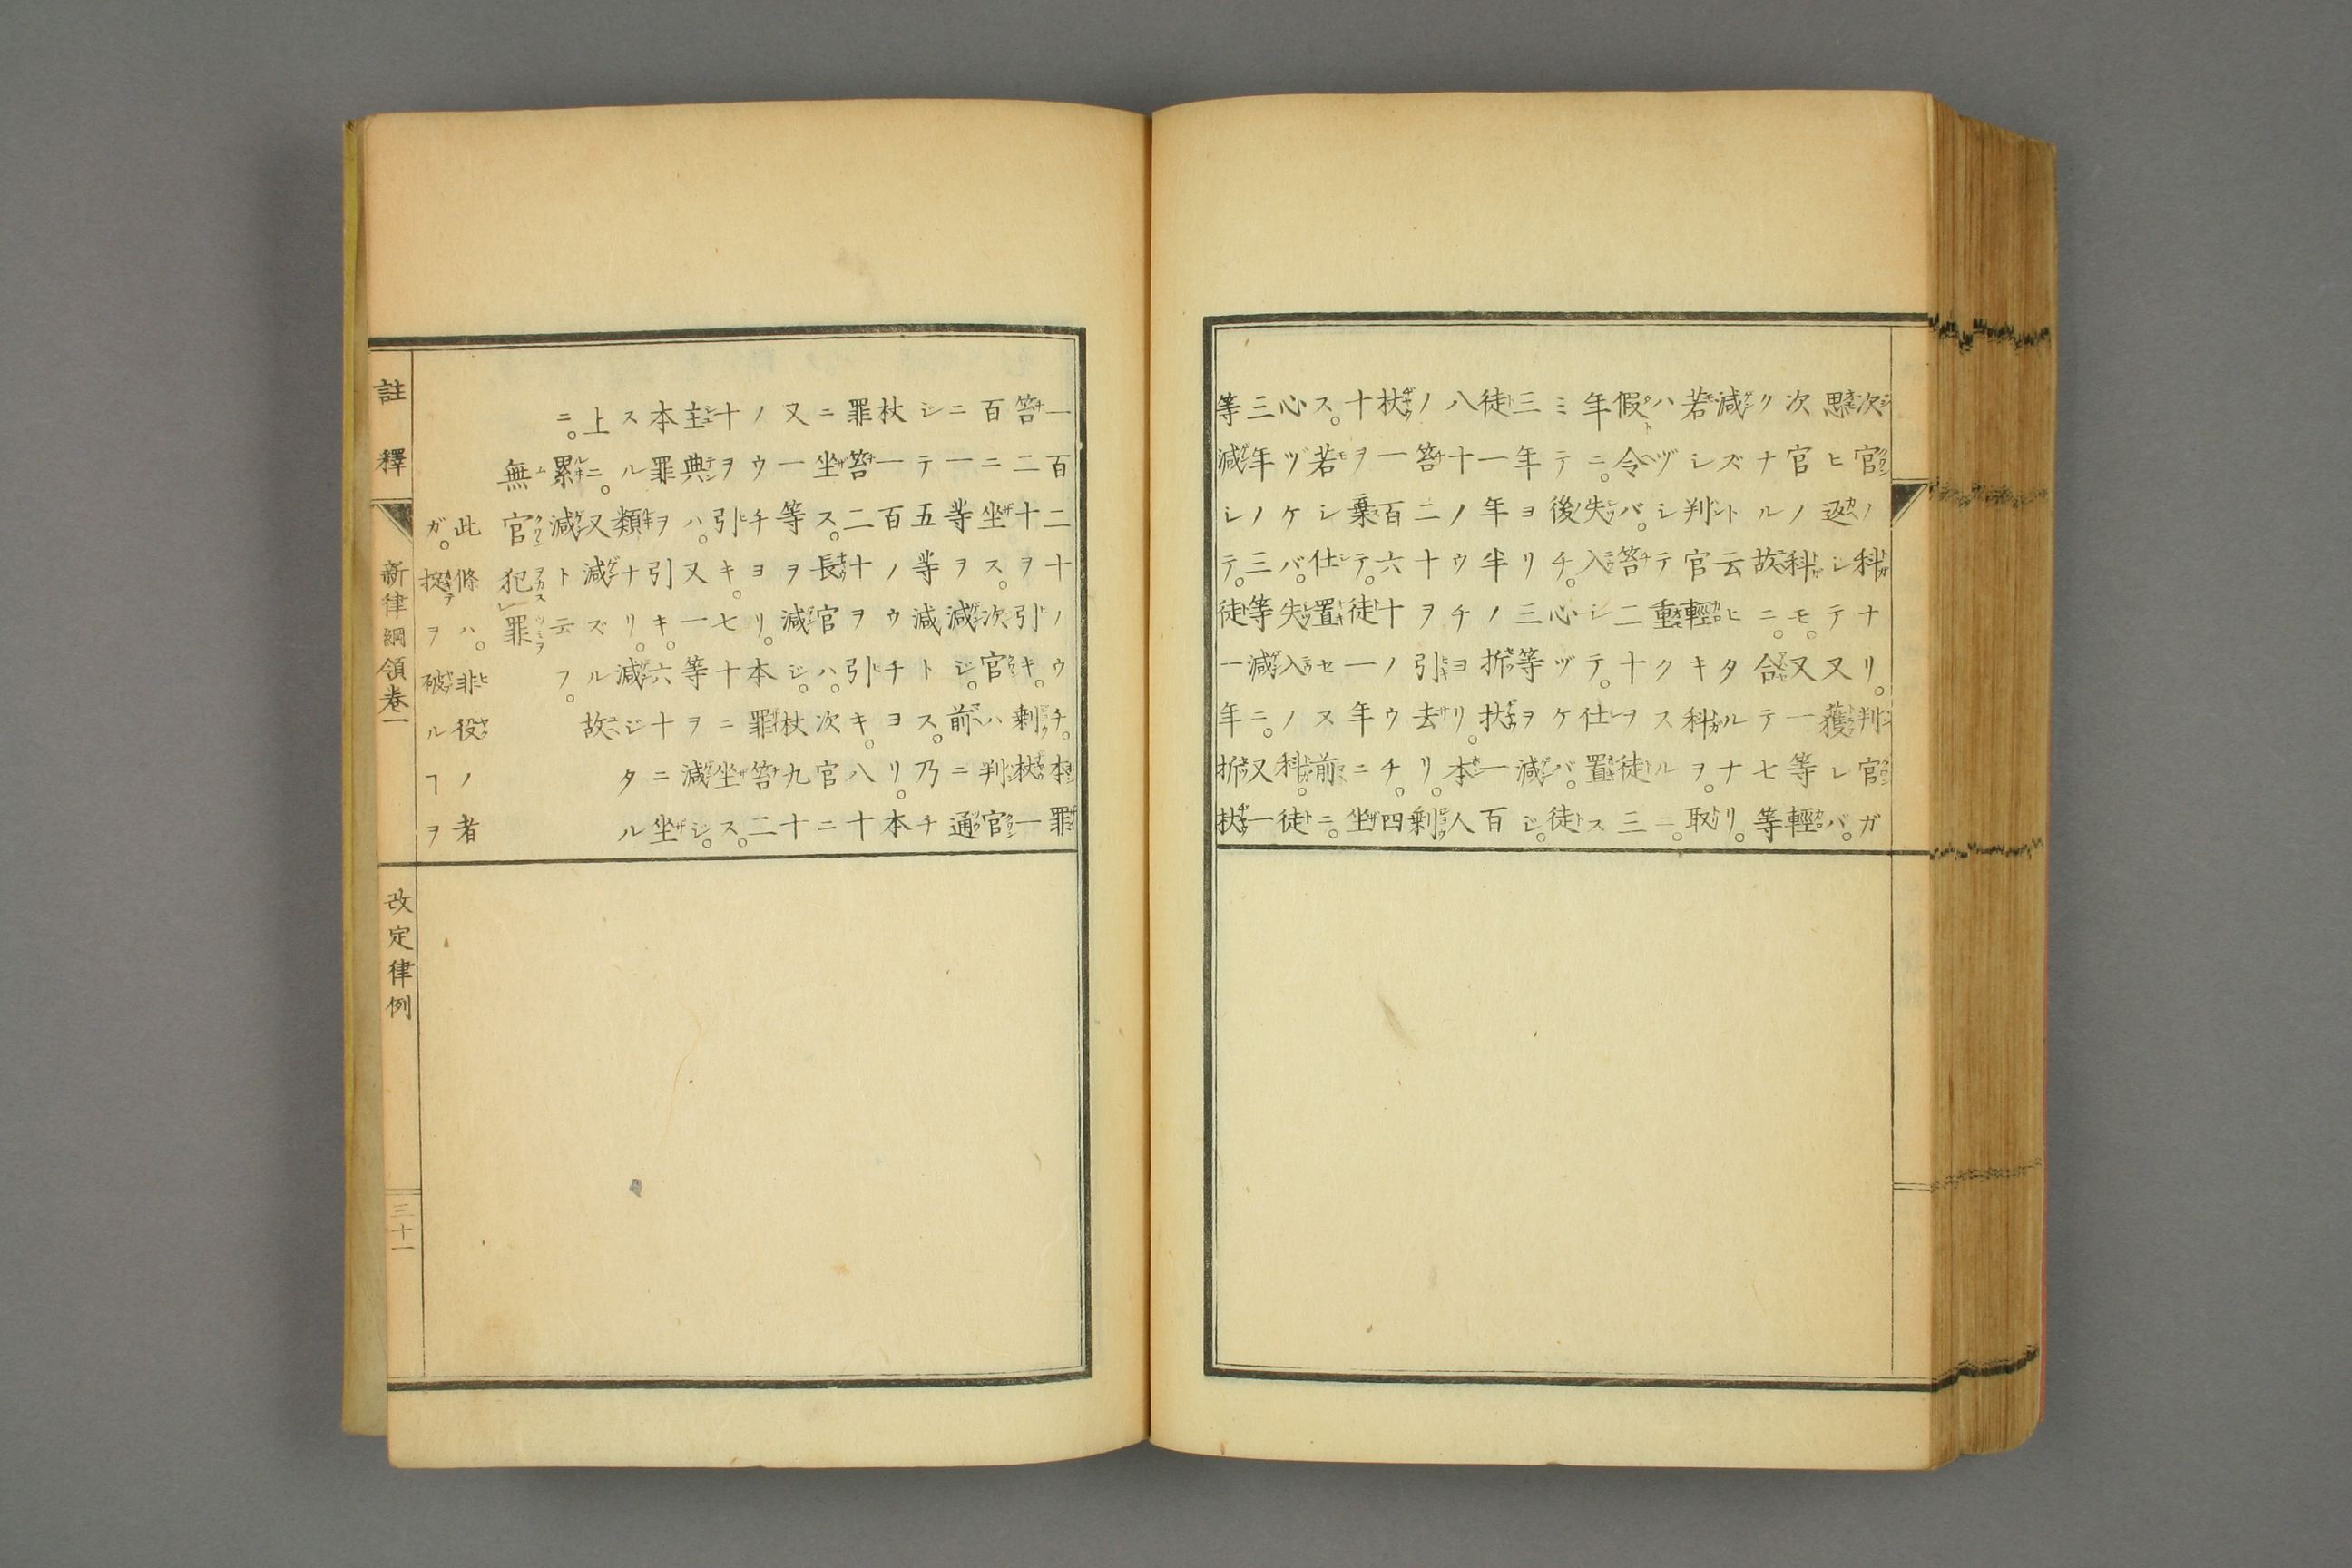 次官ノ科ナリ。判官ガ
思ヒ返シテ又獲レバ。
次官ノ科モ。又一等輕
クナル故ニ。合テ七等
減ズト云ヒタルナリ。
若レ判官輕キ科ヲ取
ハヅシテ重クスルニ。
假令バ。笞二十ヲ徒三
年ニ。失入シテ。仕置ス
ミテ後チ。心ヅケバ。徒
三年ヨリ三等ヲ減ジ。
徒一年半ノ折杖一百
八十ノウチヨリ。本人
ノ笞二十ヲ引去リ。剩
杖一百六十ノウチ。四
十ヲ棄テ。徒一年ニ坐
ス。若シ仕置セス前ニ。
心ヅケバ。失入ノ科。徒
三年ノ三等減ニ。又一
等減シテ。徒一年折杖
一百二十ノウチ。本罪
笞二十ヲ引キ。剩杖一
百ニ坐ス。次官ハ判官
ニ一等ヲ減ジ。前ニ通
ジテ五等減トス。乃チ
杖一百ノウチヨリ。本
罪笞二十ヲ引キ。八十
ニ坐ス。長官ハ。次官ニ
又一等ヲ減ジ。杖九十
ノウチヨリ。本罪笞二
十ヲ引キ。七十ニ坐ス。
主典ハ。又一等ヲ減ジ。
本罪ヲ引キ。六十ニ坐
スル類ナリ。減ジタル
上ニ。又減ズル故
ニ。累減ト云フ。
無官犯罪
此條ハ。非役ノ者
ガ。掟ヲ破ルヿヲ
註釋
新律綱領卷一
改定律例
三十一